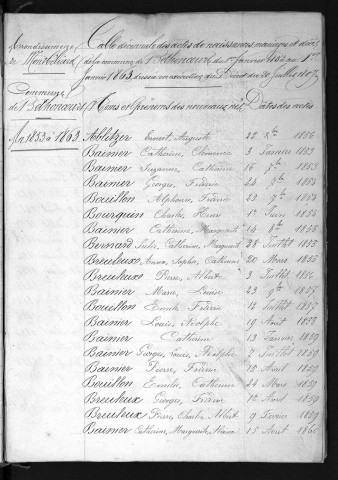 Arrondissement de Montbéliard
Commune de Bethoncourt
Table décennale des actes de naissances mariages et décès
de la commune de Bethoncourt du 1er Janvier 1853 au 1er
Janvier 1863 dressée en exécution du Décret du 20 Juillet 1807
Noms et prénoms des nouveaux nés Dates des actes
An 1853 à 1863
Abblitzer Ernest, Auguste 1856
Bainier Catherine, Clémence 3 Janvier 1853
Bainier Suzanne, Catherine 16 1853
Bainier Georges, Frédéric 24 1854
Bouillon Alphonse, Frédéric 23 1854
Bourquin Charles, Henri 1er Juin
Bainier Catherine, Marguerite 14 1855
Bernard Julie, Catherine, Marguerite 28 Juillet 1855
Breuleux Anna, Sophie, Catherine 20 Mars 1856
Breuleux Pierre, Albert 3 Juillet 1856
Bainier Marie, Louise 23 1857
Bouillon Emile, Frédéric 14 Juillet 1857
Bainier Louis, Adolphe 19 Août
Bainier Catherine 13 Janvier 1859
Bainier Georges, Louis, Adolphe 7 Juillet 1859
Bainier Pierre, Frédéric 18 Août 1859
Bouillon Emilie, Catherine 24 Mars 1859
Breuleux Georges, Frédéric 12 Août 1859
Breuleux Pierre, Charles, Albert 9 Février 1859
Bainier Catherine, Marguerite 15 Août 1860